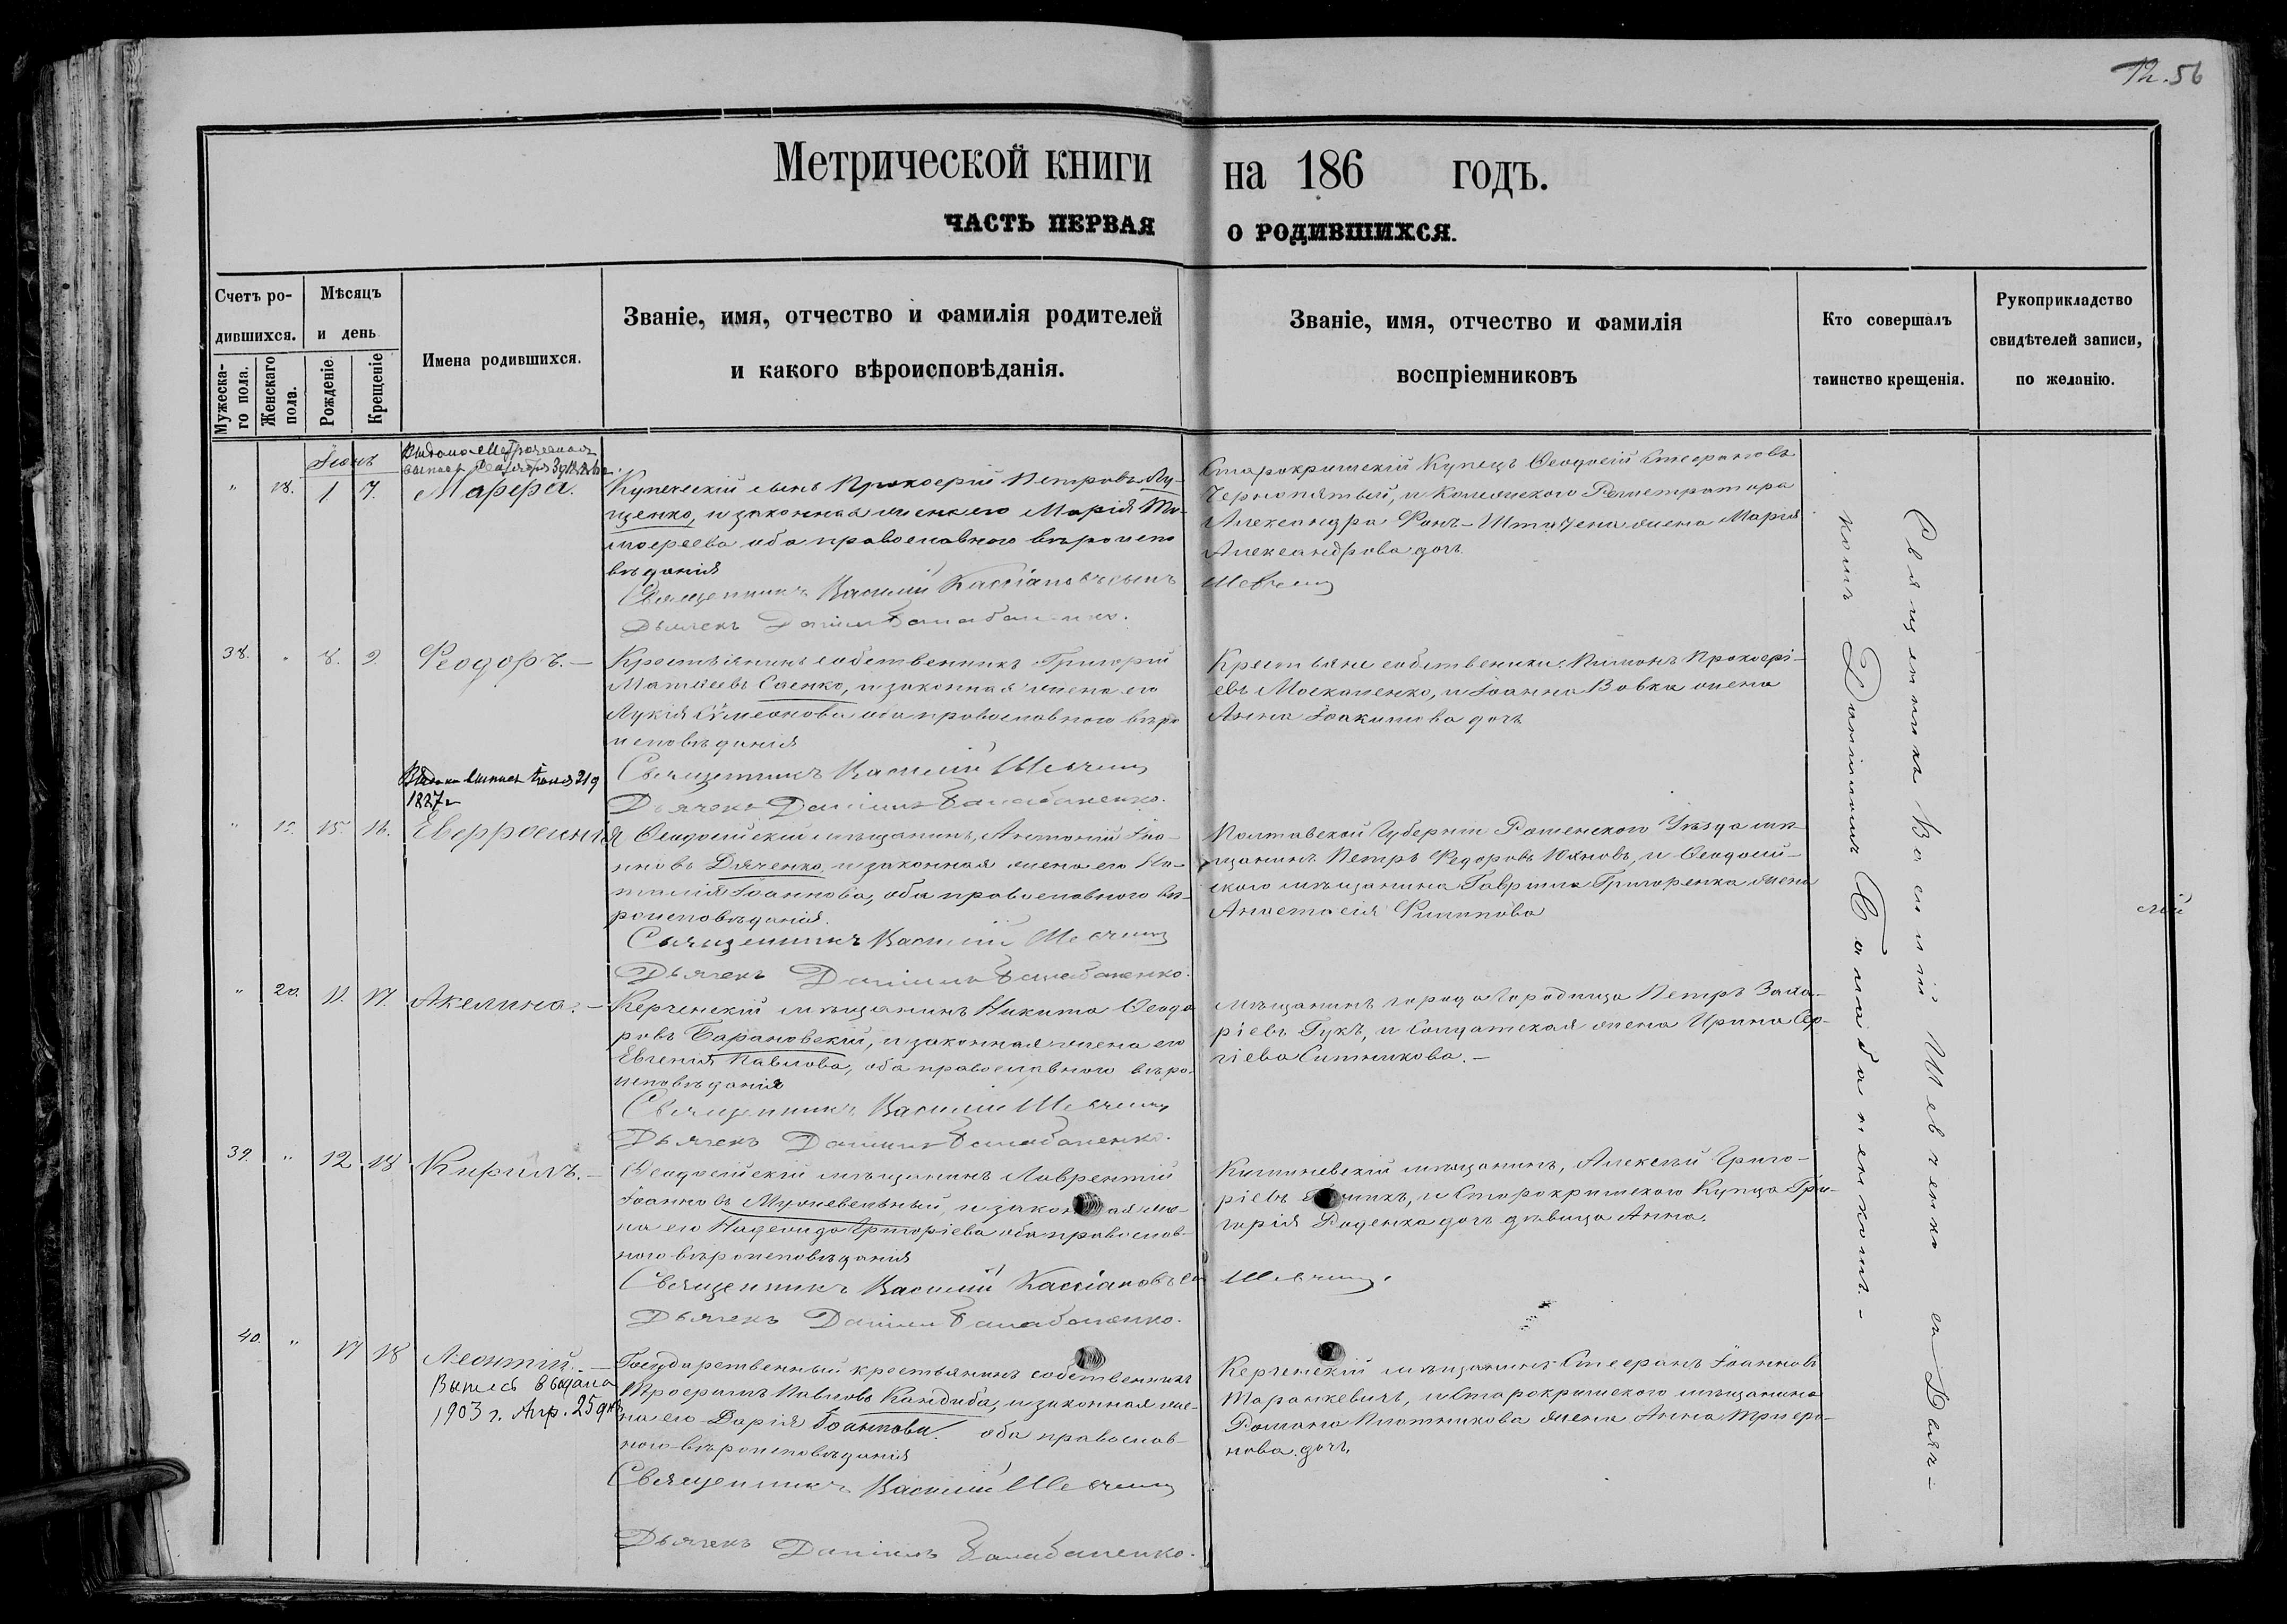 56
Метрической книги на 186 годъ.
ЧАСТЬ ПЕРВАЯ О РОДИВШИХСЯ.
Счетъ ро-
дившихся.
Мужеска-
го пола.
Женскаго
пола.
Мѣсяцъ
и день
Рожденіе.
Крещеніе
Имена родившихся.
Званіе, имя, отчество и фамилія родителей
и какого вѣроисповѣданія.
Званіе, имя, отчество и фамилія
воспріемниковъ
Кто совершалъ
таинство крещенія.
Рукоприкладство
свидѣтелей записи,
по желанію.
Выдана Метрическая
" 18. 1 7. Марфа.
Купеческій сынъ Прокофій Петровъ Лу-
ценко, и законная жена его Марія Ти-
мофеева оба православнаго вѣроиспо
вѣданія
Священникъ Василий Кассіановъ сынъ Шевченко
Дьячекъ Даніилъ Балабаненко.
Старокрымскій Купецъ Ѳеодосій Стефановъ
Чернопятый, и Колежскаго Регистратора
Александра Фонъ-Штачена жена Марія
Александрова дочь
38. " 8. 9. Феодоръ.—
Крестьянинъ собственникъ Григорій
Матвеевъ Саенко, и законная жена его
Лукія Сумеонова оба православнаго вѣро
исповѣданія
Священникъ Василий Шевченко
Дьячекъ Даніилъ Балабаненко.
Крестьяне собственники: Пименъ Прокофі-
евъ Москаленко, и Іоанна Вовка жена
Анна Іоакимова дочь
1887 г
" 19. 15. 16. Евфросинія
Ѳеодосійскій мѣщанинъ, Антоній Іоа-
нновъ Дяченко, и законная жена его На-
талія Іоаннова, оба православнаго вѣ-
роисповѣданія.
Священникъ Василий Шевченко
Дьячекъ Даніилъ Балабаненко.
Полтавской Губерніи Роменскаго Уѣзда мѣ-
щанинъ Петръ Федоровъ Юхновъ, и Ѳеодосій-
скаго мѣщанина Гавріила Григоренка жена
Анастасія Филипова
" 20. 11. 17. Акелина.—
Керченскій мѣщанинъ Никита Ѳеодо
ровъ Барановскій, и законная жена его
Евгенія Павлова, оба православнаго вѣро-
исповѣданія
Священникъ Василий Шевченко
Дьячекъ Даніилъ Балабаненко.
Мѣщанинъ города Городища Петръ Заха-
ріевъ Гукъ, и Солдатская жена Ирина Сер-
гіева Ситникова.—
39. " 12 18 Кирилъ.—
Ѳеодосійскій мѣщанинъ Лаврентій
Іоанновъ и законная же-
на его Надежда Григоріева оба православ-
наго вѣроисповѣданія
Священникъ Василий Кассіановъ сы Шевченко.
Дьячекъ Даніилъ Балабаненко.
Кишиневскій мѣщанинъ, Алексѣй Григо-
ріевъ и Старокрымскаго Купца Гри-
горія Роденка дочь дѣвица Анна.
40. " 17 18 Леонтій.—
Выпись выдана
1903 г. Апр. 25 дня
Государственный крестьянинъ собственникъ
Трофимъ Павловъ Кандиба, и законная же-
на его Дарія Іоаннова. оба православ-
наго вѣроисповѣданія
Священникъ Василий Шевченко
Дьячекъ Даніилъ Балабаненко.
Керченскій мѣщанинъ Стефанъ Іоанновъ
Таранкевичъ, и Старокрымскаго мѣщанина
Романа Плотникова жена Анна Трифо-
нова дочь.
Священникъ Василій Шевченко съ Дьяч-
комъ Даніиломъ Балабаненкомъ.—